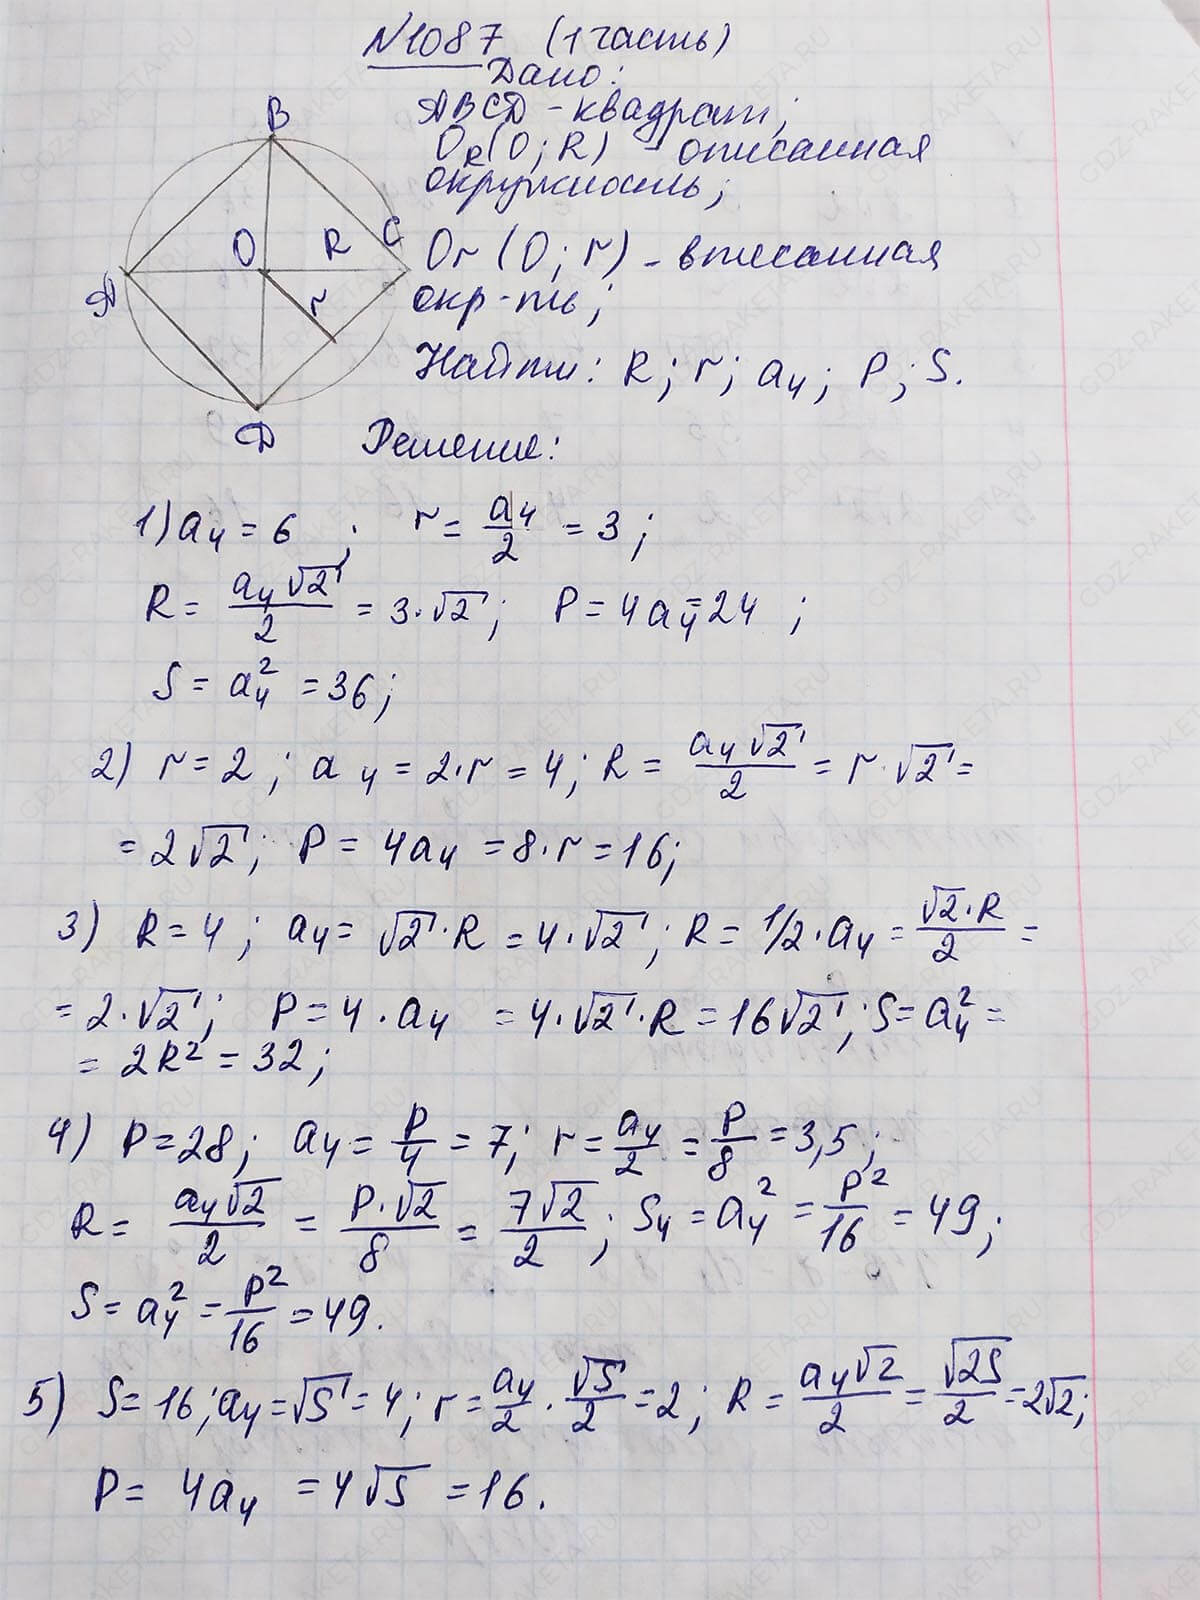 №1087 (1 часть)
Дано:
ABCD - квадрат;
O_R(O; R) - описанная
окружность;
Or (O; r) - вписанная
окр-ть;
Найти: R; r; a₄; P; S.
B
O R C
A r
D
Решение:
1) a₄ = 6 ; r = a₄/2 = 3 ;
R = a₄√2/2 = 3·√2; P = 4a₄=24 ;
S = a₄² = 36;
2) r = 2 ; a₄ = 2·r = 4; R = a₄√2/2 = r·√2 =
= 2√2; P = 4a₄ = 8·r = 16;
3) R = 4 ; a₄ = √2·R = 4·√2; R = 1/2·a₄ = √2·R/2 =
= 2·√2; P = 4·a₄ = 4·√2·R = 16√2; S = a₄² =
= 2R² = 32;
4) P = 28; a₄ = P/4 = 7; r = a₄/2 = P/8 = 3,5 ;
R = a₄√2/2 = P·√2/8 = 7√2/2 ; S₄ = a₄² = P²/16 = 49;
S = a₄² = P²/16 = 49.
5) S = 16; a₄ = √S = 4; r = a₄/2 · √S/2 = 2; R = a₄√2/2 = √2S/2 = 2√2;
P = 4a₄ = 4√S = 16.
GDZ-RAKETA.RU